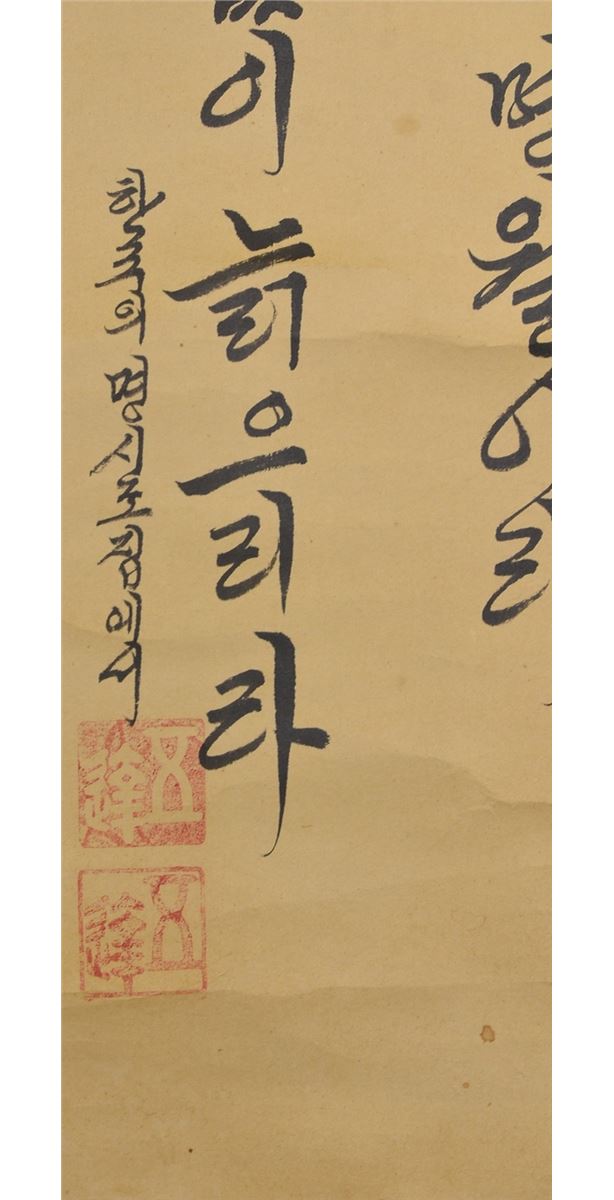 명월이
이 늙으리라
한국의 명시조집에서